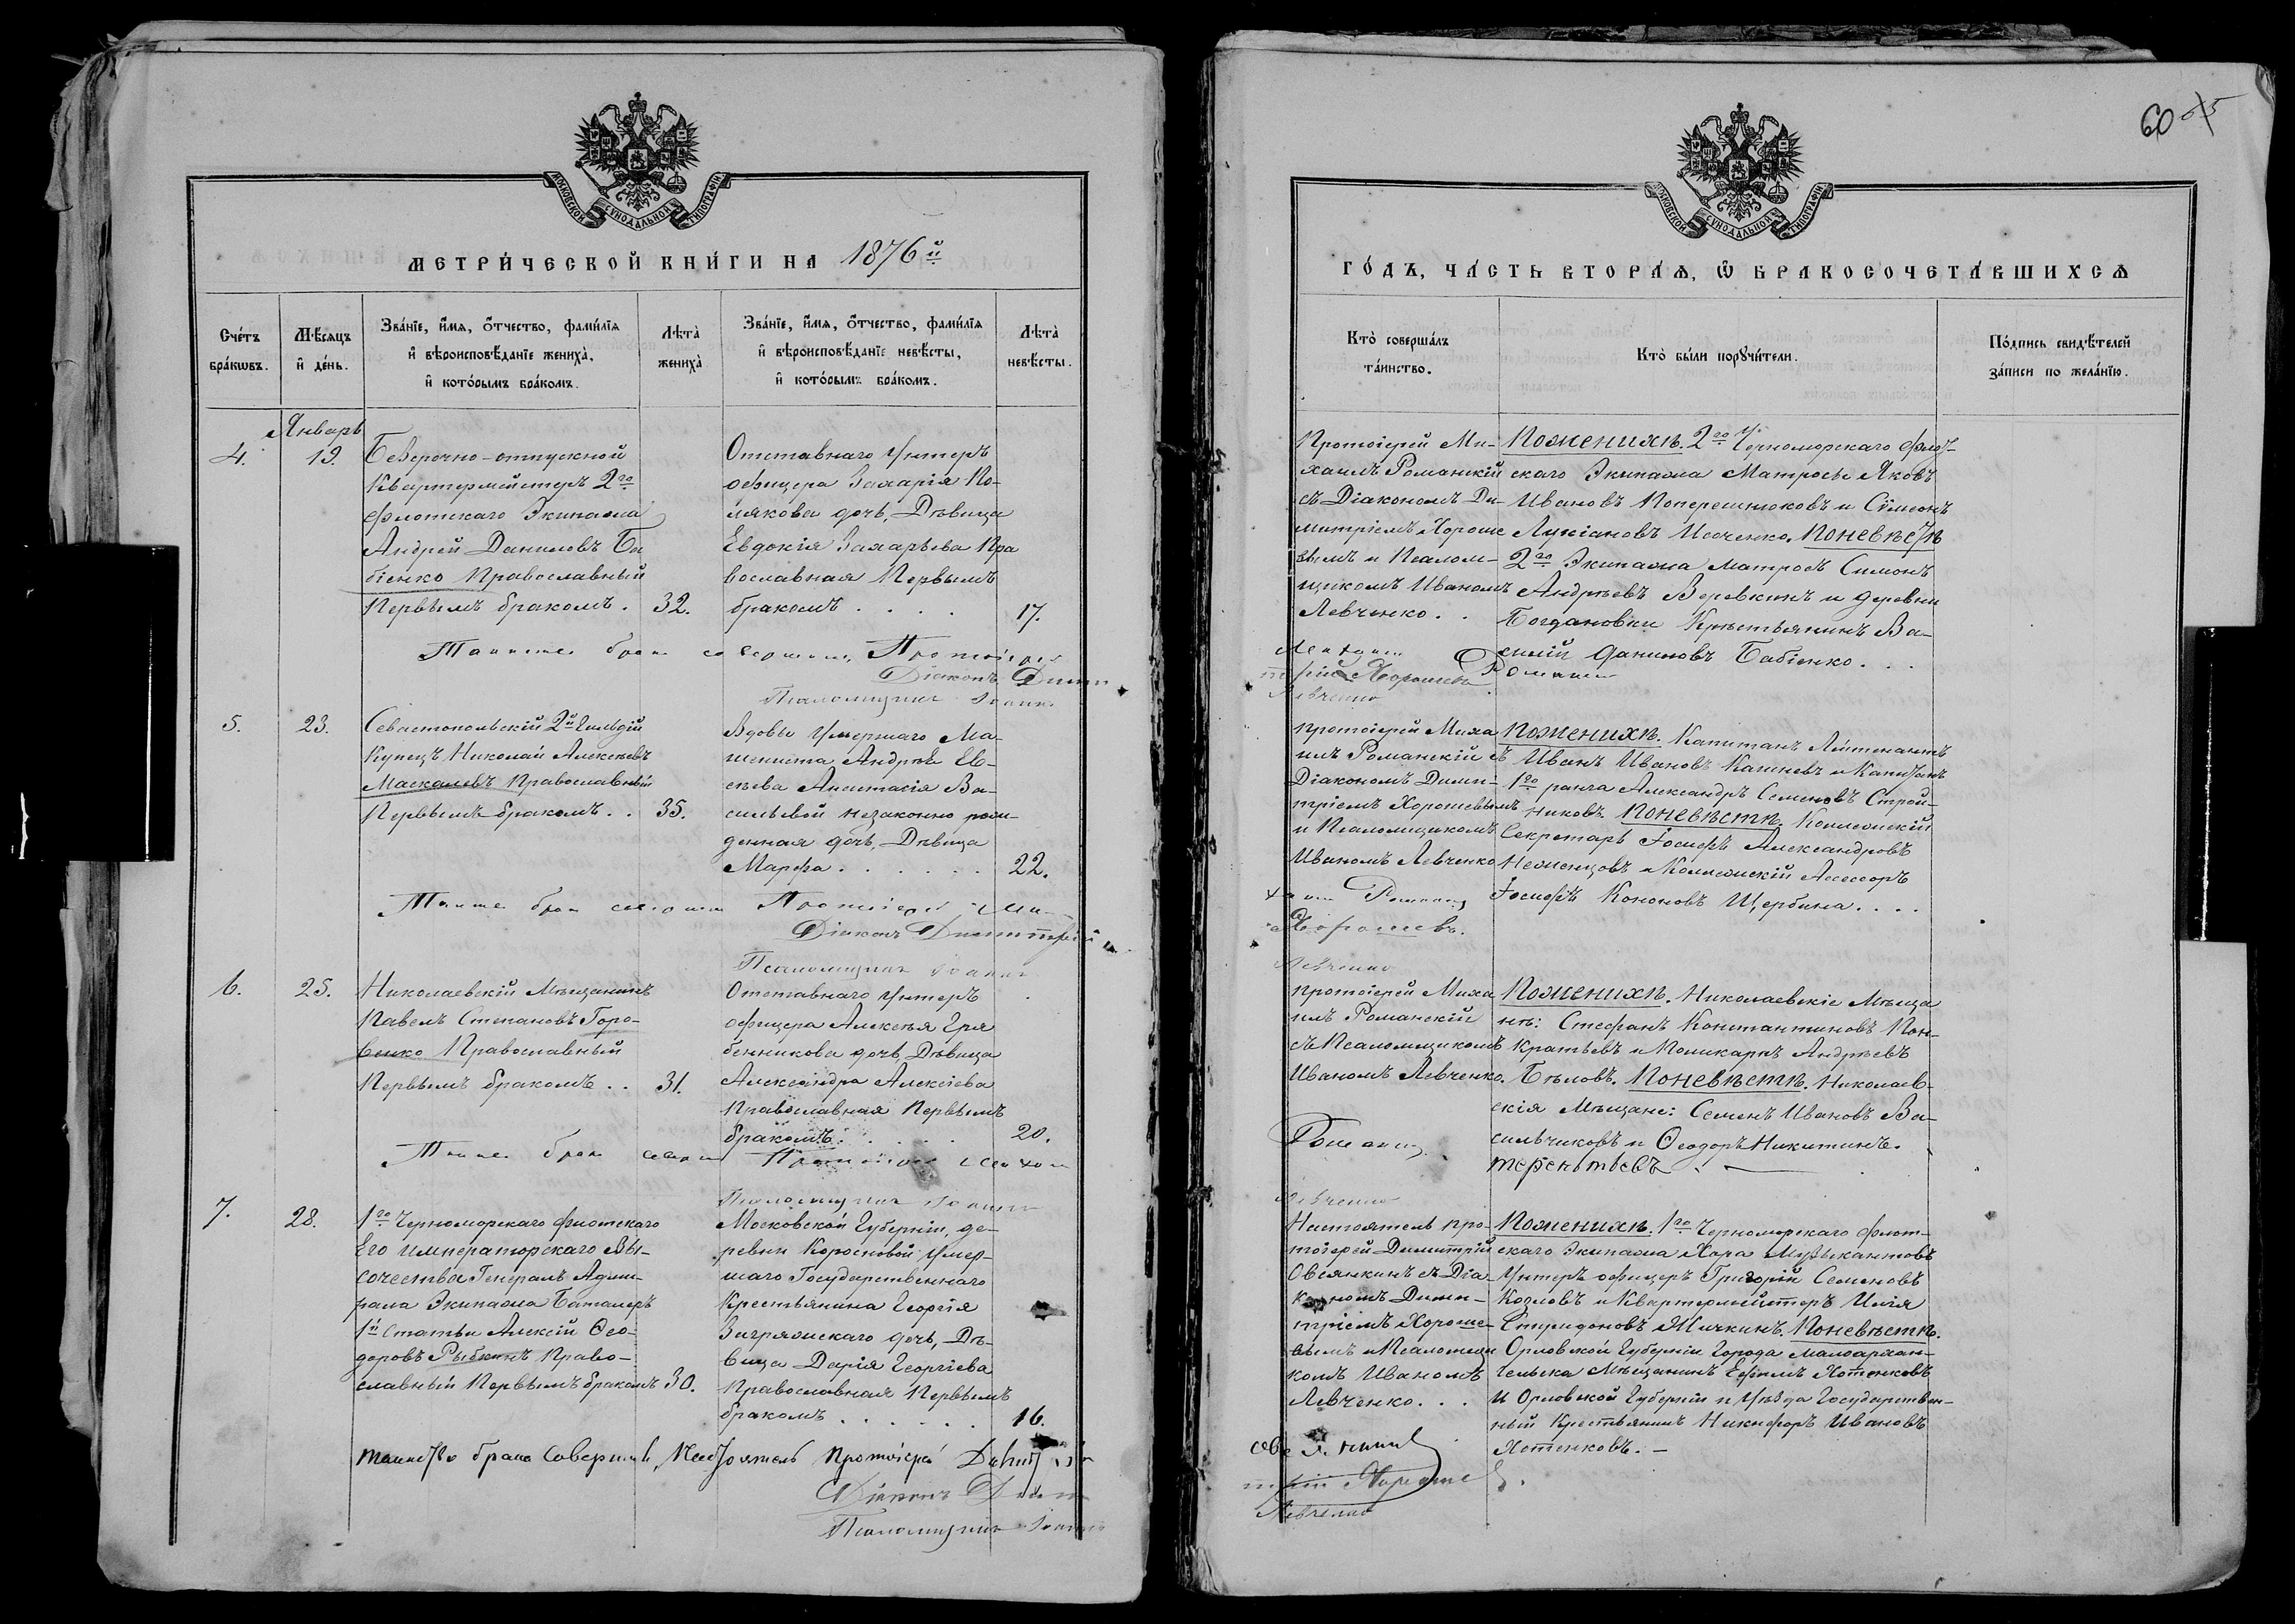 МОСКОВСКОЙ СѴНОДАЛЬНОЙ ТИПОГРАФІИ
МЕТРИ́ЧЕСКОЙ КНИ́ГИ НА 1876й
Сче́тъ бра́кѡвъ.
Мѣ́сяцъ и҆ де́нь.
Зва́нїе, и҆́мѧ, ѻ҆́тчество, фами́лїѧ
и҆ вѣроисповѣ́данїе жениха̀,
и҆ кото́рымъ бра́комъ.
Лѣта̀ жениха̀
Зва́нїе, и҆́мѧ, ѻ҆́тчество, фами́лїѧ
и҆ вѣроисповѣ́данїе невѣ́сты,
и҆ кото́рымъ бра́комъ.
Лѣта̀ невѣ́сты.
Январь
4.
19.
Безсрочно-отпускной
Квартермейстеръ 2го
флотскаго Экипажа
Андрей Даниловъ Ба
біенко Православный
Первымъ бракомъ. 32.
Отставнаго Унтеръ
офицера Захарія По-
лякова дочь, Дѣвица
Евдокія Захарьева Пра
вославная Первымъ
бракомъ . . . . 17.
Протоіерей
Діаконъ
Псаломщикъ
5.
23.
Севастопольскій 2й Гильдіи
Купецъ Николай Алексѣевъ
Маскалевъ Православный
Первымъ бракомъ . . 35.
Вдовы умершаго Ма-
шиниста Андрея Ев-
сѣева Анастасія Ва-
сильевой незаконно рож-
денная дочь, Дѣвица
Марфа . . . . . . 22.
Діаконъ Димитрій
Псаломщикъ
6.
25.
Николаевскій Мѣщанинъ
Павелъ Степановъ Горо-
венко Православный
Первымъ бракомъ . . 31.
Отставнаго Унтеръ
офицера Алексѣя Гре
бенникова дочь, Дѣвица
Александра Алексіева
Православная Первымъ
бракомъ . . . . . 20.
Псаломщикъ
7.
28.
1го Черноморскаго флотскаго
Его Императорскаго Вы-
сочества Генералъ Адми-
рала Экипажа Баталеръ
1й Статьи Алексій Ѳео-
доровъ Рыбкинъ Право-
славный Первымъ бракомъ 30.
Московской Губерніи, де-
ревни умер-
шаго Государственнаго
Крестьянина Георгія
Загряжскаго дочь, Дѣ-
вица Дарія Георгіева
Православная Первымъ
бракомъ . . . . . . 16.
Таинство брака совершили, Настоятель Протоіерей
Діаконъ
Псаломщикъ
60
МОСКОВСКОЙ СѴНОДАЛЬНОЙ ТИПОГРАФІИ
ГО́ДЪ, ЧА́СТЬ ВТОРА́Ѧ, Ѽ БРАКОСОЧЕТА́ВШИХСѦ
Кто̀ соверша́лъ та́инство.
Кто̀ бы́ли порꙋчи́тели.
По́дпись свидѣ́телей за́писи по жела́нїю.
Протоіерей Ми-
хаилъ Романскій
съ Діакономъ Ди-
митріемъ Хороше
вымъ и Псалом-
щикомъ Иваномъ
Левченко . .
По женихѣ. 2го Черноморскаго флот-
скаго Экипажа Матросы Яковъ
Ивановъ и Сѵмеонъ
Лукіановъ Исаченко. По невѣстѣ
2го Экипажа Матросъ Симонъ
Андрѣевъ Веревкинъ и деревни
Богдановки Крестьянинъ Ва-
силій Даниловъ Бабіенко . . .
Левченко
Протоіерей Миха
илъ Романскій съ
Діакономъ Дими-
тріемъ Хорошевымъ
и Псаломщикомъ
Иваномъ Левченко
По женихѣ. Капитанъ Лейтенантъ
Иванъ Ивановъ и Капитанъ
1го ранга Александръ Семеновъ Строй-
никовъ. По невѣстѣ. Коллежскій
Секретарь Іосифъ Александровъ
Неженцовъ и Коллежскій Асессоръ
Іосифъ Кононовъ Щербина . . . .
Хорошевъ.
Левченко
Протоіерей Миха
илъ Романскій
съ Псаломщикомъ
Иваномъ Левченко.
По женихѣ. Николаевскіе Мѣща
не: Стефанъ Константиновъ Кон-
кратьевъ и Поликарпъ Андрѣевъ
Бѣловъ. По невѣстѣ. Николаев-
скія Мѣщане: Семенъ Ивановъ Ва-
сильчиковъ и Ѳеодоръ Никитинъ
Терентьевъ.
Левченко
Настоятель Про-
тоіерей Димитрій
Овсянкинъ съ Діа-
кономъ Дими-
тріемъ Хороше-
вымъ и Псаломщи
комъ Иваномъ
Левченко . . .
По женихѣ. 1го Черноморскаго флот-
скаго Экипажа Хора Музыкантовъ
Унтеръ офицеръ Григорій Семеновъ
Козловъ и Квартермейстеръ Илія
Спиридоновъ Жичкинъ. По невѣстѣ.
Орловской Губерніи Города Малоархан-
гельска Мѣщанинъ Ефимъ Хотенковъ
и Орловской Губерніи и Уѣзда Государствен-
ный Крестьянинъ Никифоръ Ивановъ
Хотенковъ. –
Левченко